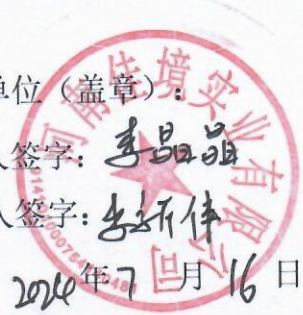 单位（盖章）：
人签字：李晶晶
人签字：
2024年7月16日
河南佳境实业有限公司